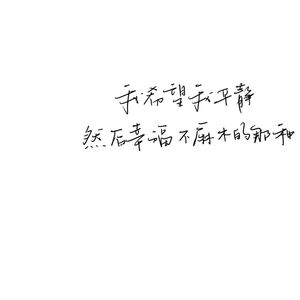 我希望我平静
然后幸福不麻木的那种